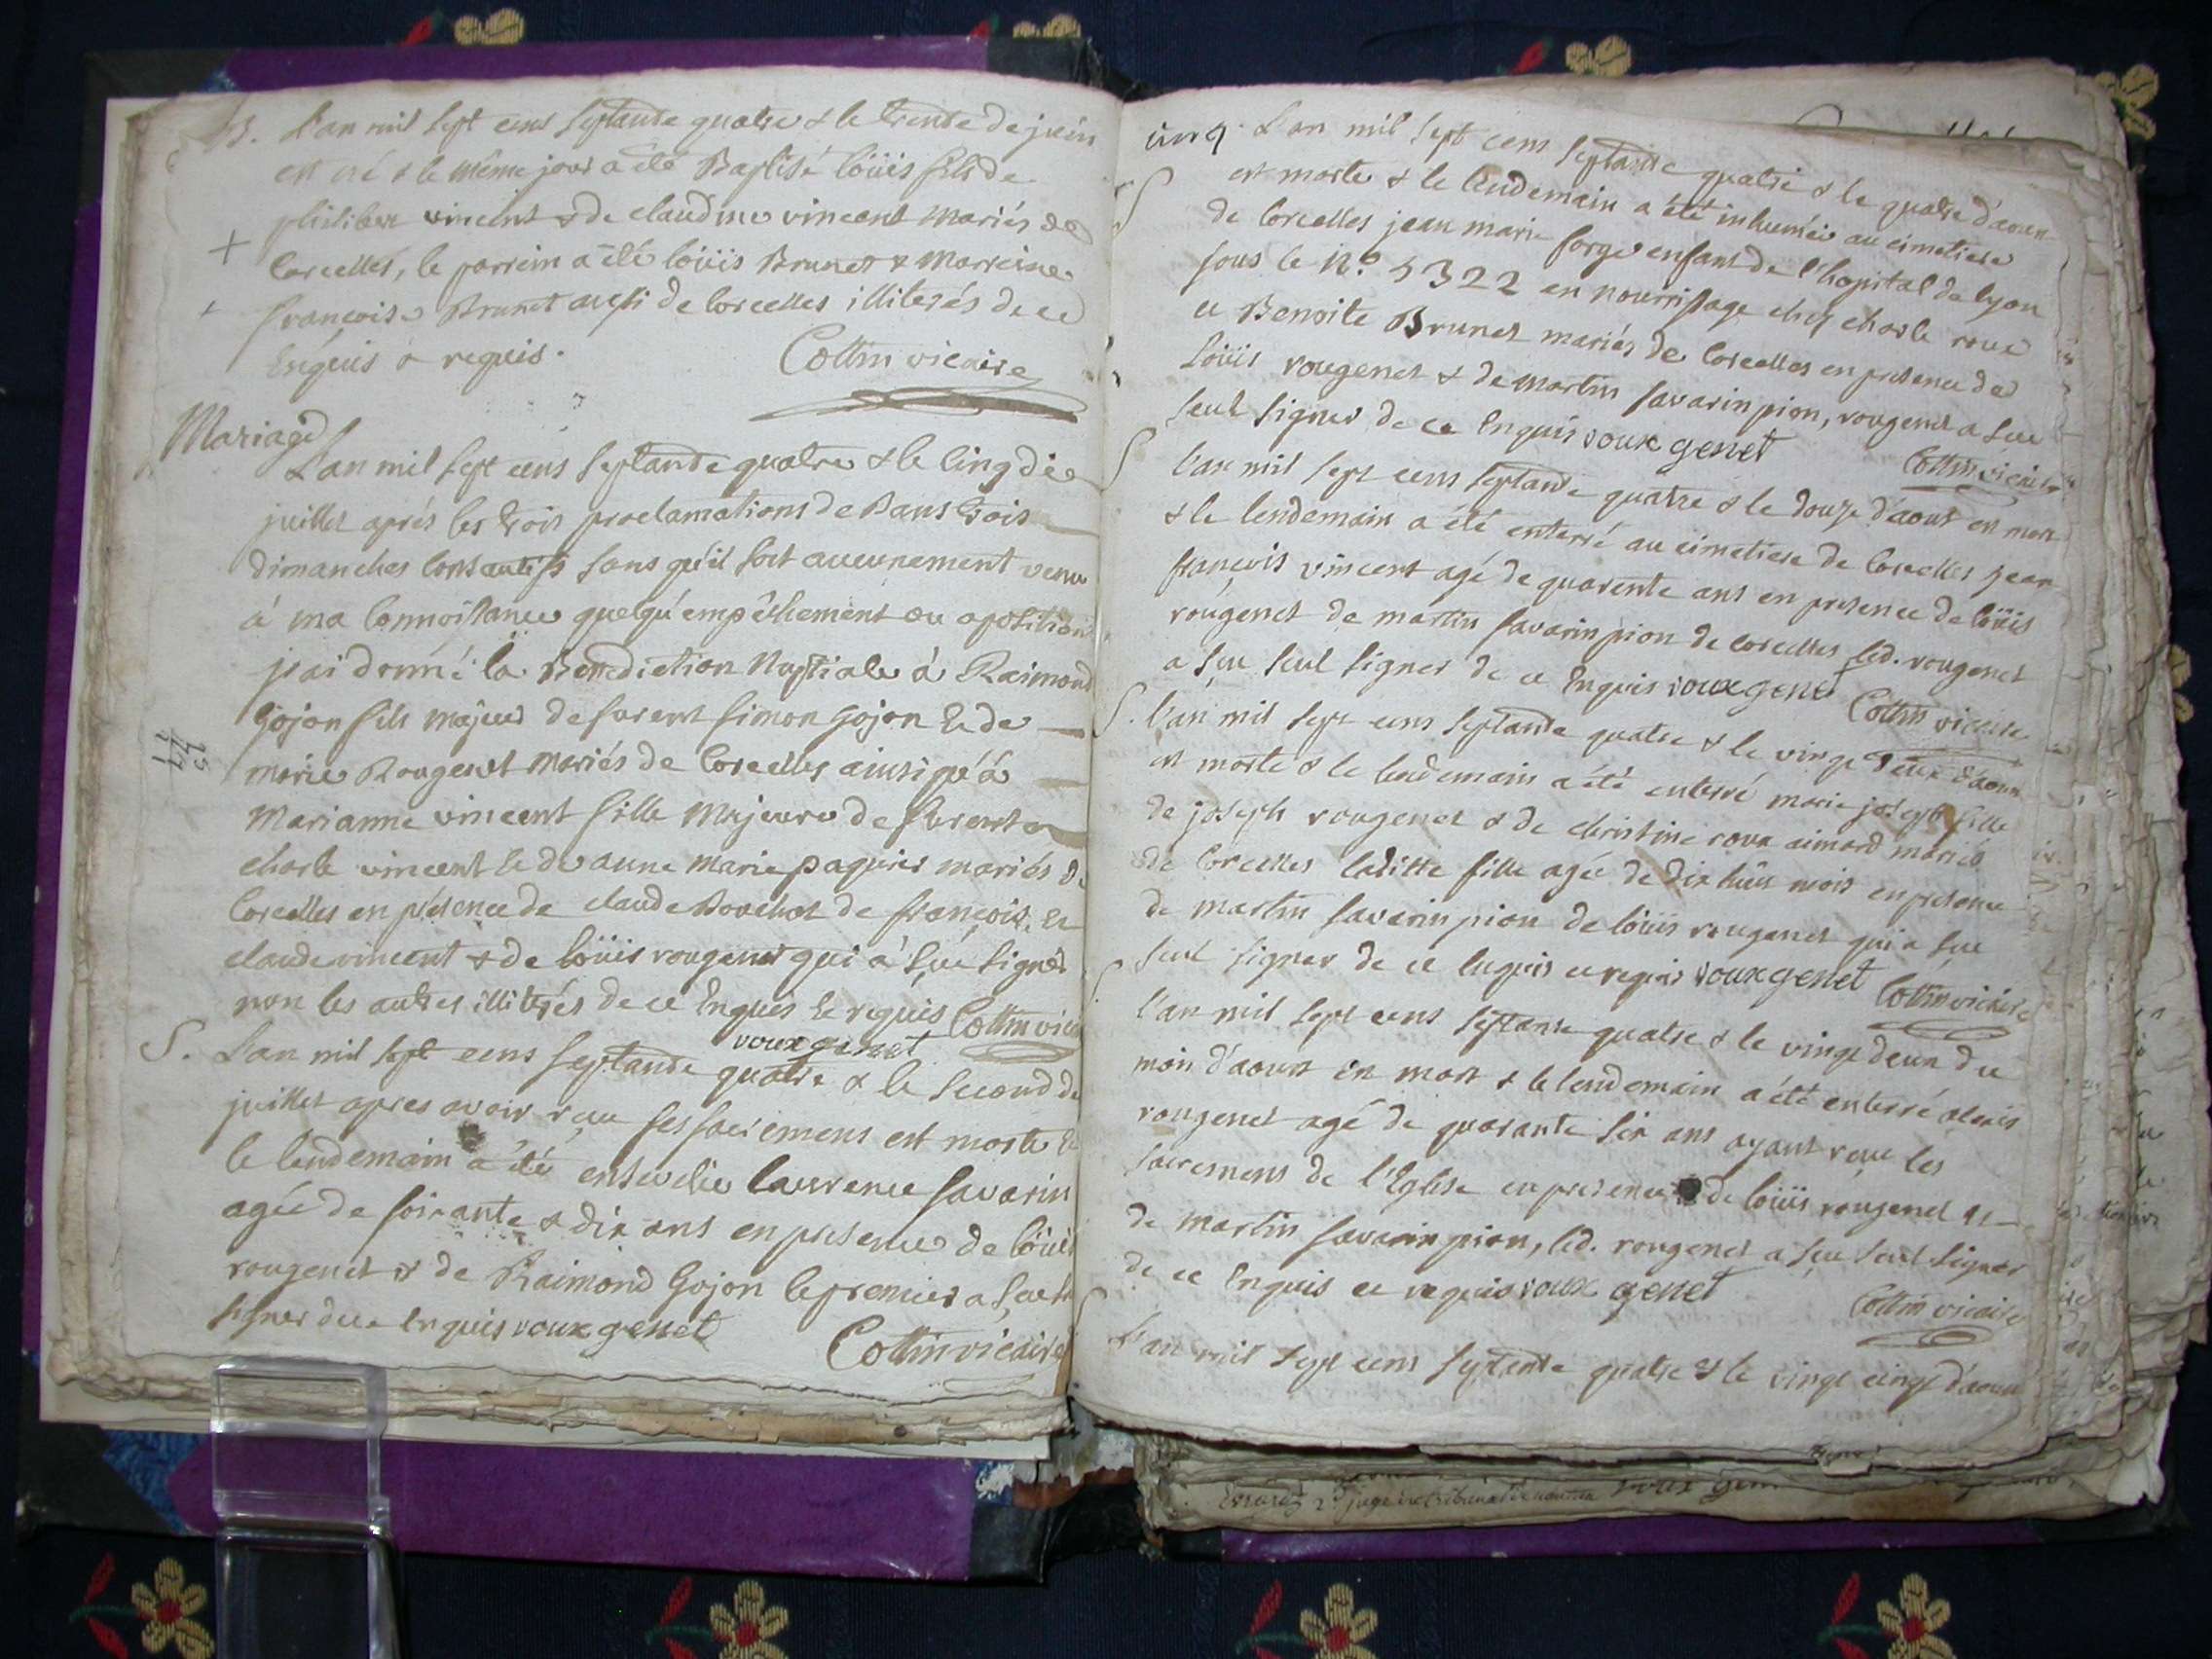 B. L'an mil sept cens septante quatre & le trente de juin
est né & le même jour a été Baptisé loüis fils de
philibert vincent & de claudine vincent mariés de
Corcelles, le parrein a été loüis Brunet & Marreine
françoise Brunet aussi de Corcelles illiterés de ce
Enquis & requis. Cottin vicaire
Mariage
L'an mil sept cens septante quatre & le Cinq de
juillet aprés les trois proclamations de Bans trois
dimanches Consecutifs sans qu'il soit aucunement venu
à ma Connoissance quelqu'empêchement ou oposition
j'ai donné la Benediction Nuptiale à Raimond
Gojon fils majeur de furent simon Gojon & de
marie Rougenet mariés de Corcelles ainsi qu'à
Marianne vincent fille Majeure de furent
charle vincent & de anne Marie paquier mariés de
Corcelles en présence de claude Bouchet de françois, &
claude vincent & de loüis rougenet qui à sçu signer
non les autres illiterés de ce Enquis & requis Cottin vicai
rouxgenet
S. L'an mil sept cens septante quatre & le second de
juillet apres avoir reçu ses sacremens est morte &
le lendemain a été ensevelie laurence savarin
agée de soixante & dix ans en presence de loüis
rougenet & de Raimond Gojon le premier a sçu
signer de ce enquis rouxgenet
Cottin vicaire
5
44
cinq. L'an mil sept cens septante quatre & le quatre d'aoust
S est morte & le lendemain a été inhumée au cimetiere
de Corcelles jean marie forge enfant de l'hopital de lyon
sous le N.º 5322 en nourrissage chez charle roux
et Benoite Brunet mariés de Corcelles en presence de
Loüis rougenet & de martin savarin pion, rougenet a sçu
seul signer de ce Enquis rouxgenet
Cottin vicaire
S L'an mil sept cens septante quatre & le douze d'aoust est mort
& le lendemain a été enterré au cimetiere de Corcelles jean
françois vincent agé de quarente ans en presence de loüis
rougenet de martin savarin pion de corcelles led. rougenet
a sçu seul signer de ce Enquis rouxgenet Cottin vicaire
S. L'an mil sept cens septante quatre & le vingt deux d'aoust
est morte & le lendemain a été enterré marie joseph fille
de joseph rougenet & de christine roux aimard mariés
de Corcelles laditte fille agée de dix huit mois en presence
de martin savarin pion de loüis rougenet qui a sçu
seul signer de ce Enquis et requis rouxgenet Cottin vicaire
S L'an mil sept cens septante quatre & le vingt deux du
mois d'aoust est mort & le lendemain a été enterré alexis
rougenet agé de quarante six ans ayant reçu les
sacremens de l'Eglise en presence de loüis rougenet &
de martin savarin pion, led. rougenet a sçu seul signer
de ce Enquis et requis roux genet
Cottin vicaire
S L'an mil sept cens septante quatre & le vingt cinq d'aoust